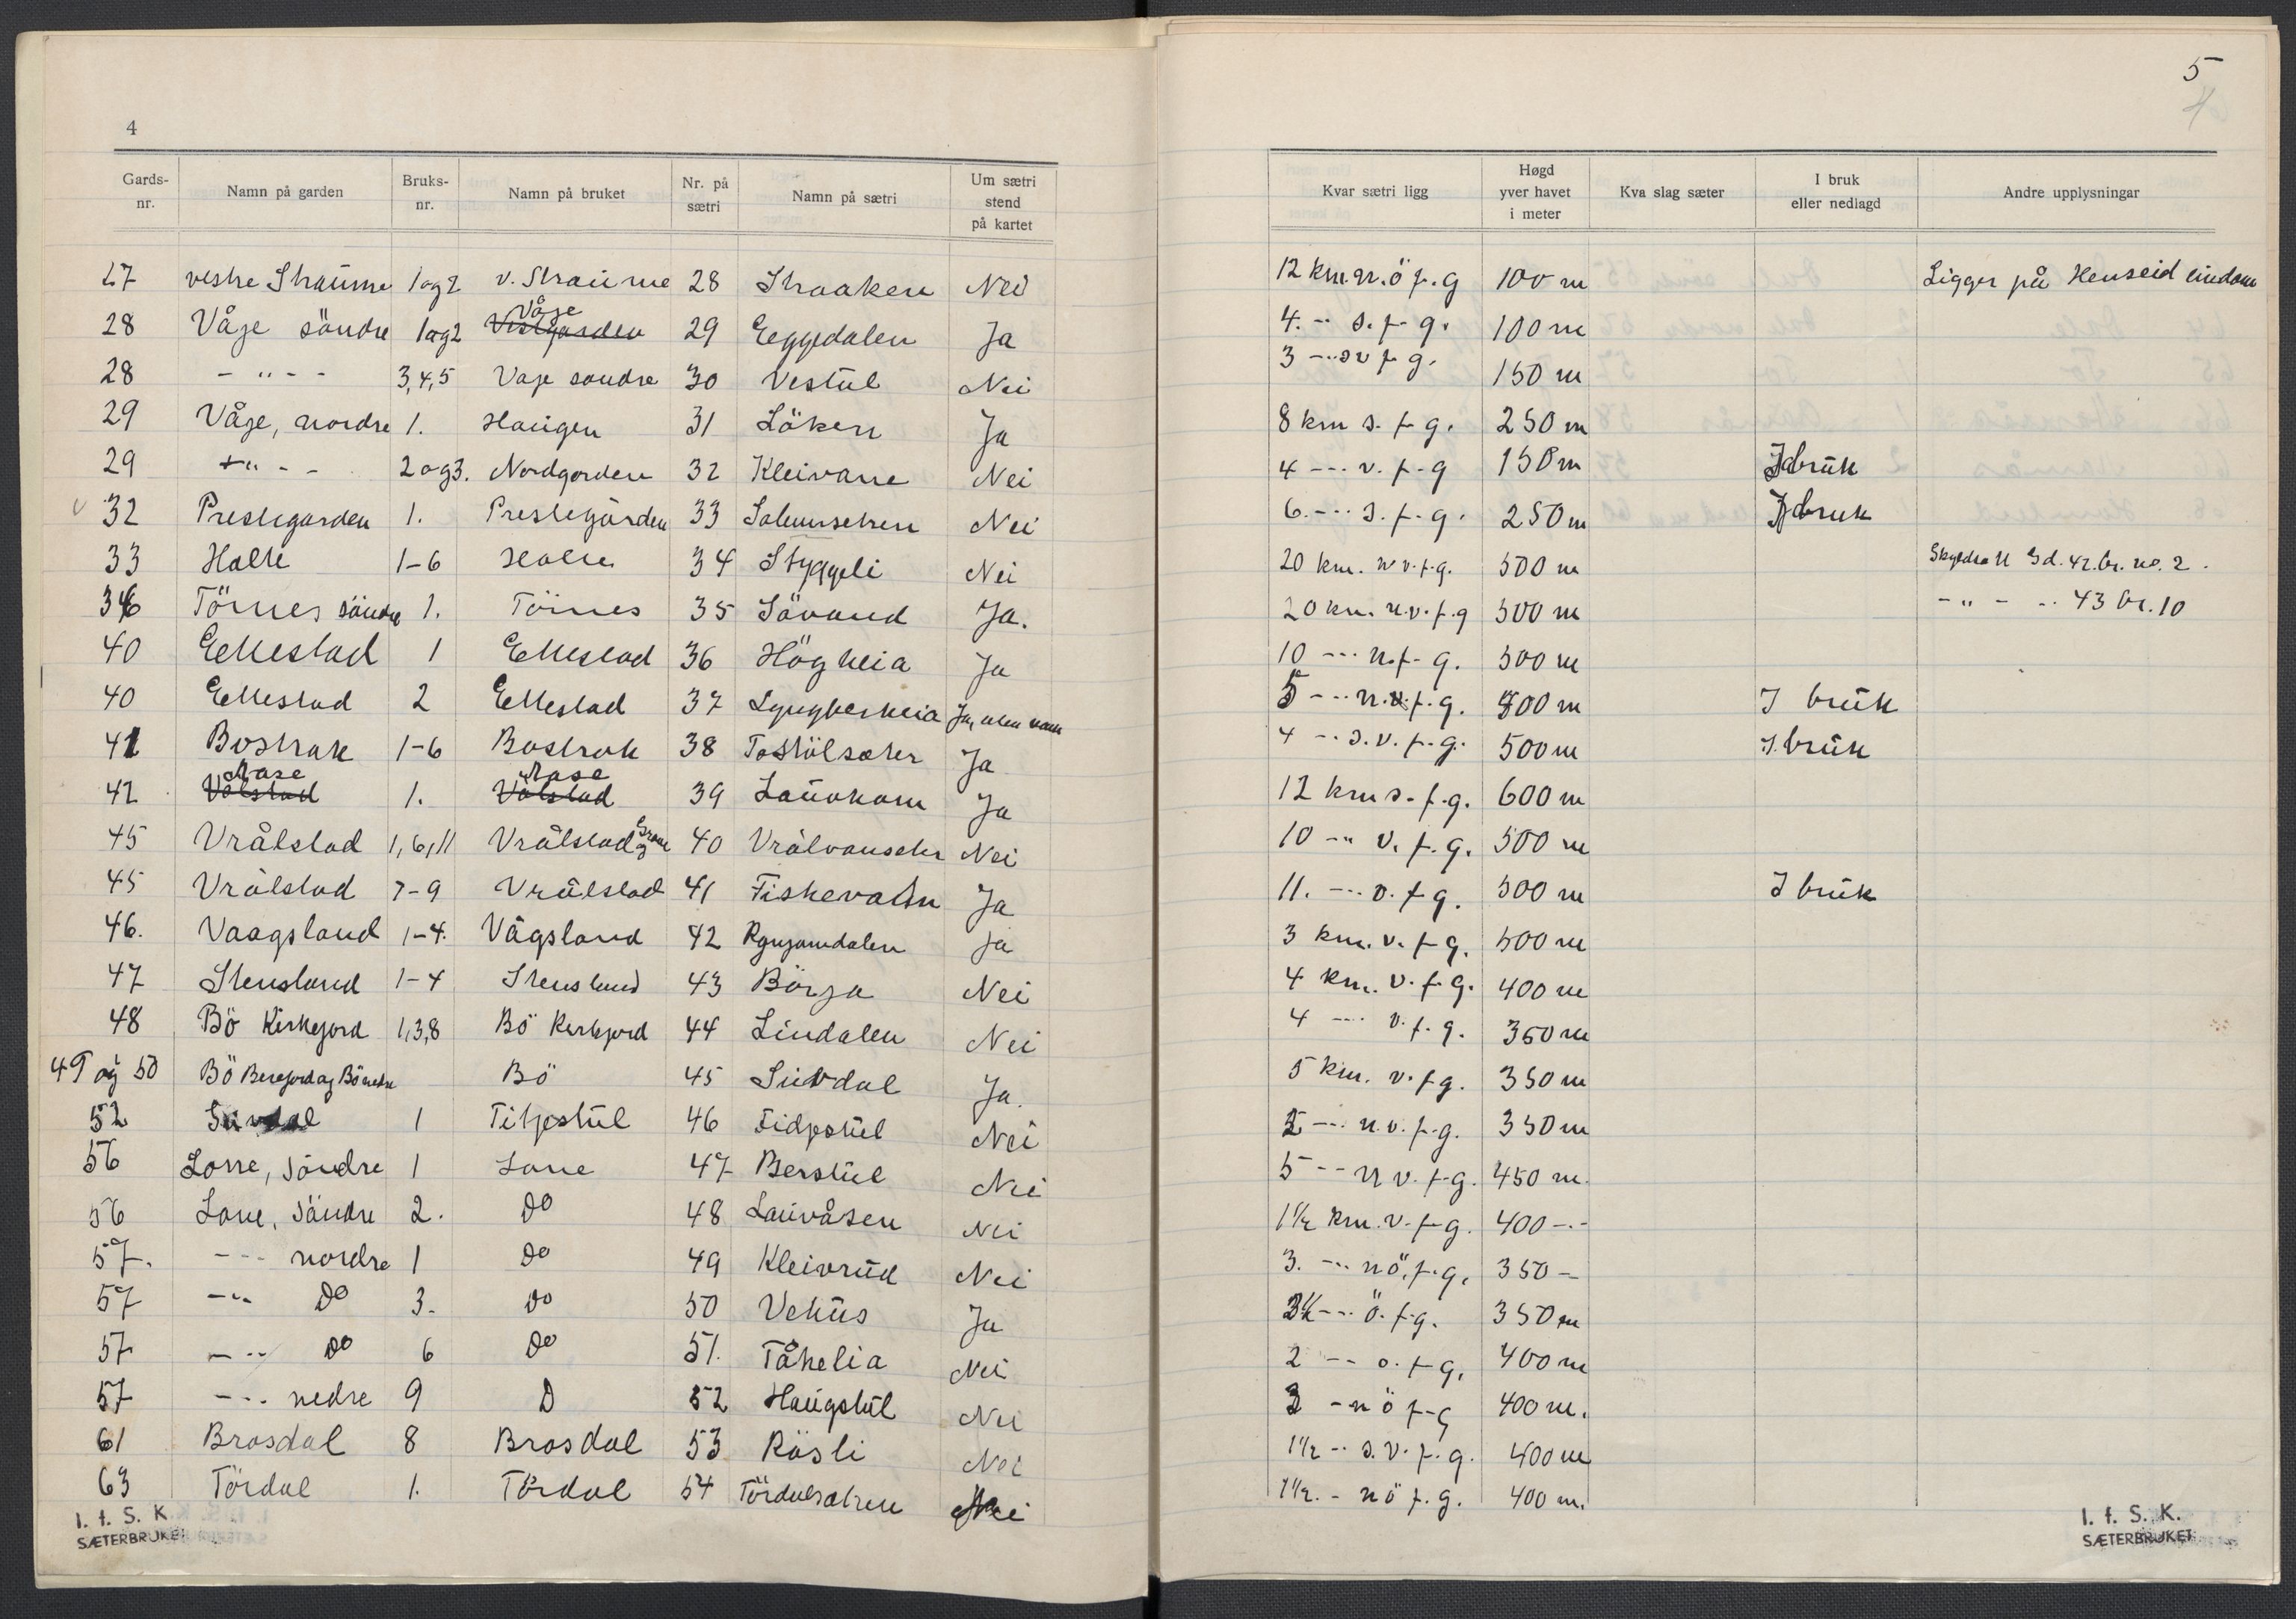 4
Gards-nr. Namn på garden Bruks-nr. Namn på bruket Nr. på sætri Namn på sætri Um sætri stend på kartet
27 vestre Straume 1og2 v. Straume 28 Straaken Nei
28 Våje söndre 1og2 Våje Vestgarden 29 Eeggedalen Ja
28 - " - - 3,4,5 Vaje sondre 30 Vestul Nei
29 Våje, nordre 1. Haugen 31 Löken Ja
29 - " - - 2og3. Nordgorden 32 Kleivane Nei
32 Prestegarden 1. Prestegården 33 Nei
33 Halle 1-6 Halle 34 Styggeli Nei
36 Törnes söndre 1. Törnes 35 Sävand Ja.
40 Ellestad 1 Ellestad 36 Högheia Ja
40 Ellestad 2 Ellestad 37 Lyngheskeia Ja, uten navn
41 Bostrak 1-6 Bostrak 38 Tostölsæter Ja
42 Aase Valstad 1. Aase Valstad 39 Ja
45 Vrålstad 1,6,11 Vrålstad 40 Vrålvanseter Nei
45 Vrålstad 7-9 Vrålstad 41 Fiskevatn Ja
46. Vaagsland 1-4. Vågsland 42 Ja
47 Stensland 1-4 Stensland 43 Börja Nei
48 Bö Kirkejord 1,3,8 Bö Kirkejord 44 Lindalen Nei
49 og 50 Bö Benejord og Bö nedre Bö 45 Suvdal Ja.
52 Suvdal 1 Titjestul 46 Tidjestul Nei
56 Lone, söndre 1 Lone 47 Berstul Nei
56 Lone, söndre 2. Do 48 Lauvåsen Nei
57. - - - nordre 1 Do 49 Kleivrud Nei
57 - " - Do 3. Do 50 Vehus Ja
57 - " - Do 6 Do 51. Tåkelia Nei
57 - - - nedre 9 D 52 Haugstul Nei
61 Brosdal 8 Brosdal 53 Rösli Nei
63 Tördal 1. Tördal 54 Tördalsætren Nei
I. f. S. K.
SÆTERBRUKET
5
4
Kvar sætri ligg Høgd yver havet i meter Kva slag sæter I bruk eller nedlagd Andre upplysningar
12 km. n.ö f.g 100 m Ligger på Henseid eindom
4. -- s. f. g. 100 m
3 --- sv f. g. 150 m
8 km s. f. g. 250 m
4 --- v. f. g 150 m I bruk
6. --- s. f. g. 250 m I bruk
20 km. n v. f. g. 500 m Skyldsatt Gd. 42. br. no. 2.
20 km. n.v. f. g 500 m - " - - 43 br. 10
10 --- n. f. g. 500 m
5 --- n.v. f. g. 500 m I bruk
4 -- s. v. f. g. 500 m I bruk
12 km s. f. g. 600 m
10 -- v. f. g. 500 m
11. --- v. f. g. 500 m I bruk
3 km. v. f. g. 500 m
4 km. v. f. g. 400 m
4 --- v. f. g. 350 m
5 km. v. f. g. 350 m
2 --- n. v. f. g. 350 m
5 --- n v. f. g. 450 m.
1 1/2 km. v. f. g. 400 -.-
3. --- nö. f. g. 350 -
3 1/2 --- ö. f. g. 350 m
2 --- o. f. g. 400 m
3 - n ö f. g 400 m.
1 1/2 -- s. v. f. g. 400 m
1 1/2. - nö f. g. 400 m.
I. f. S. K.
SÆTERBRUKET